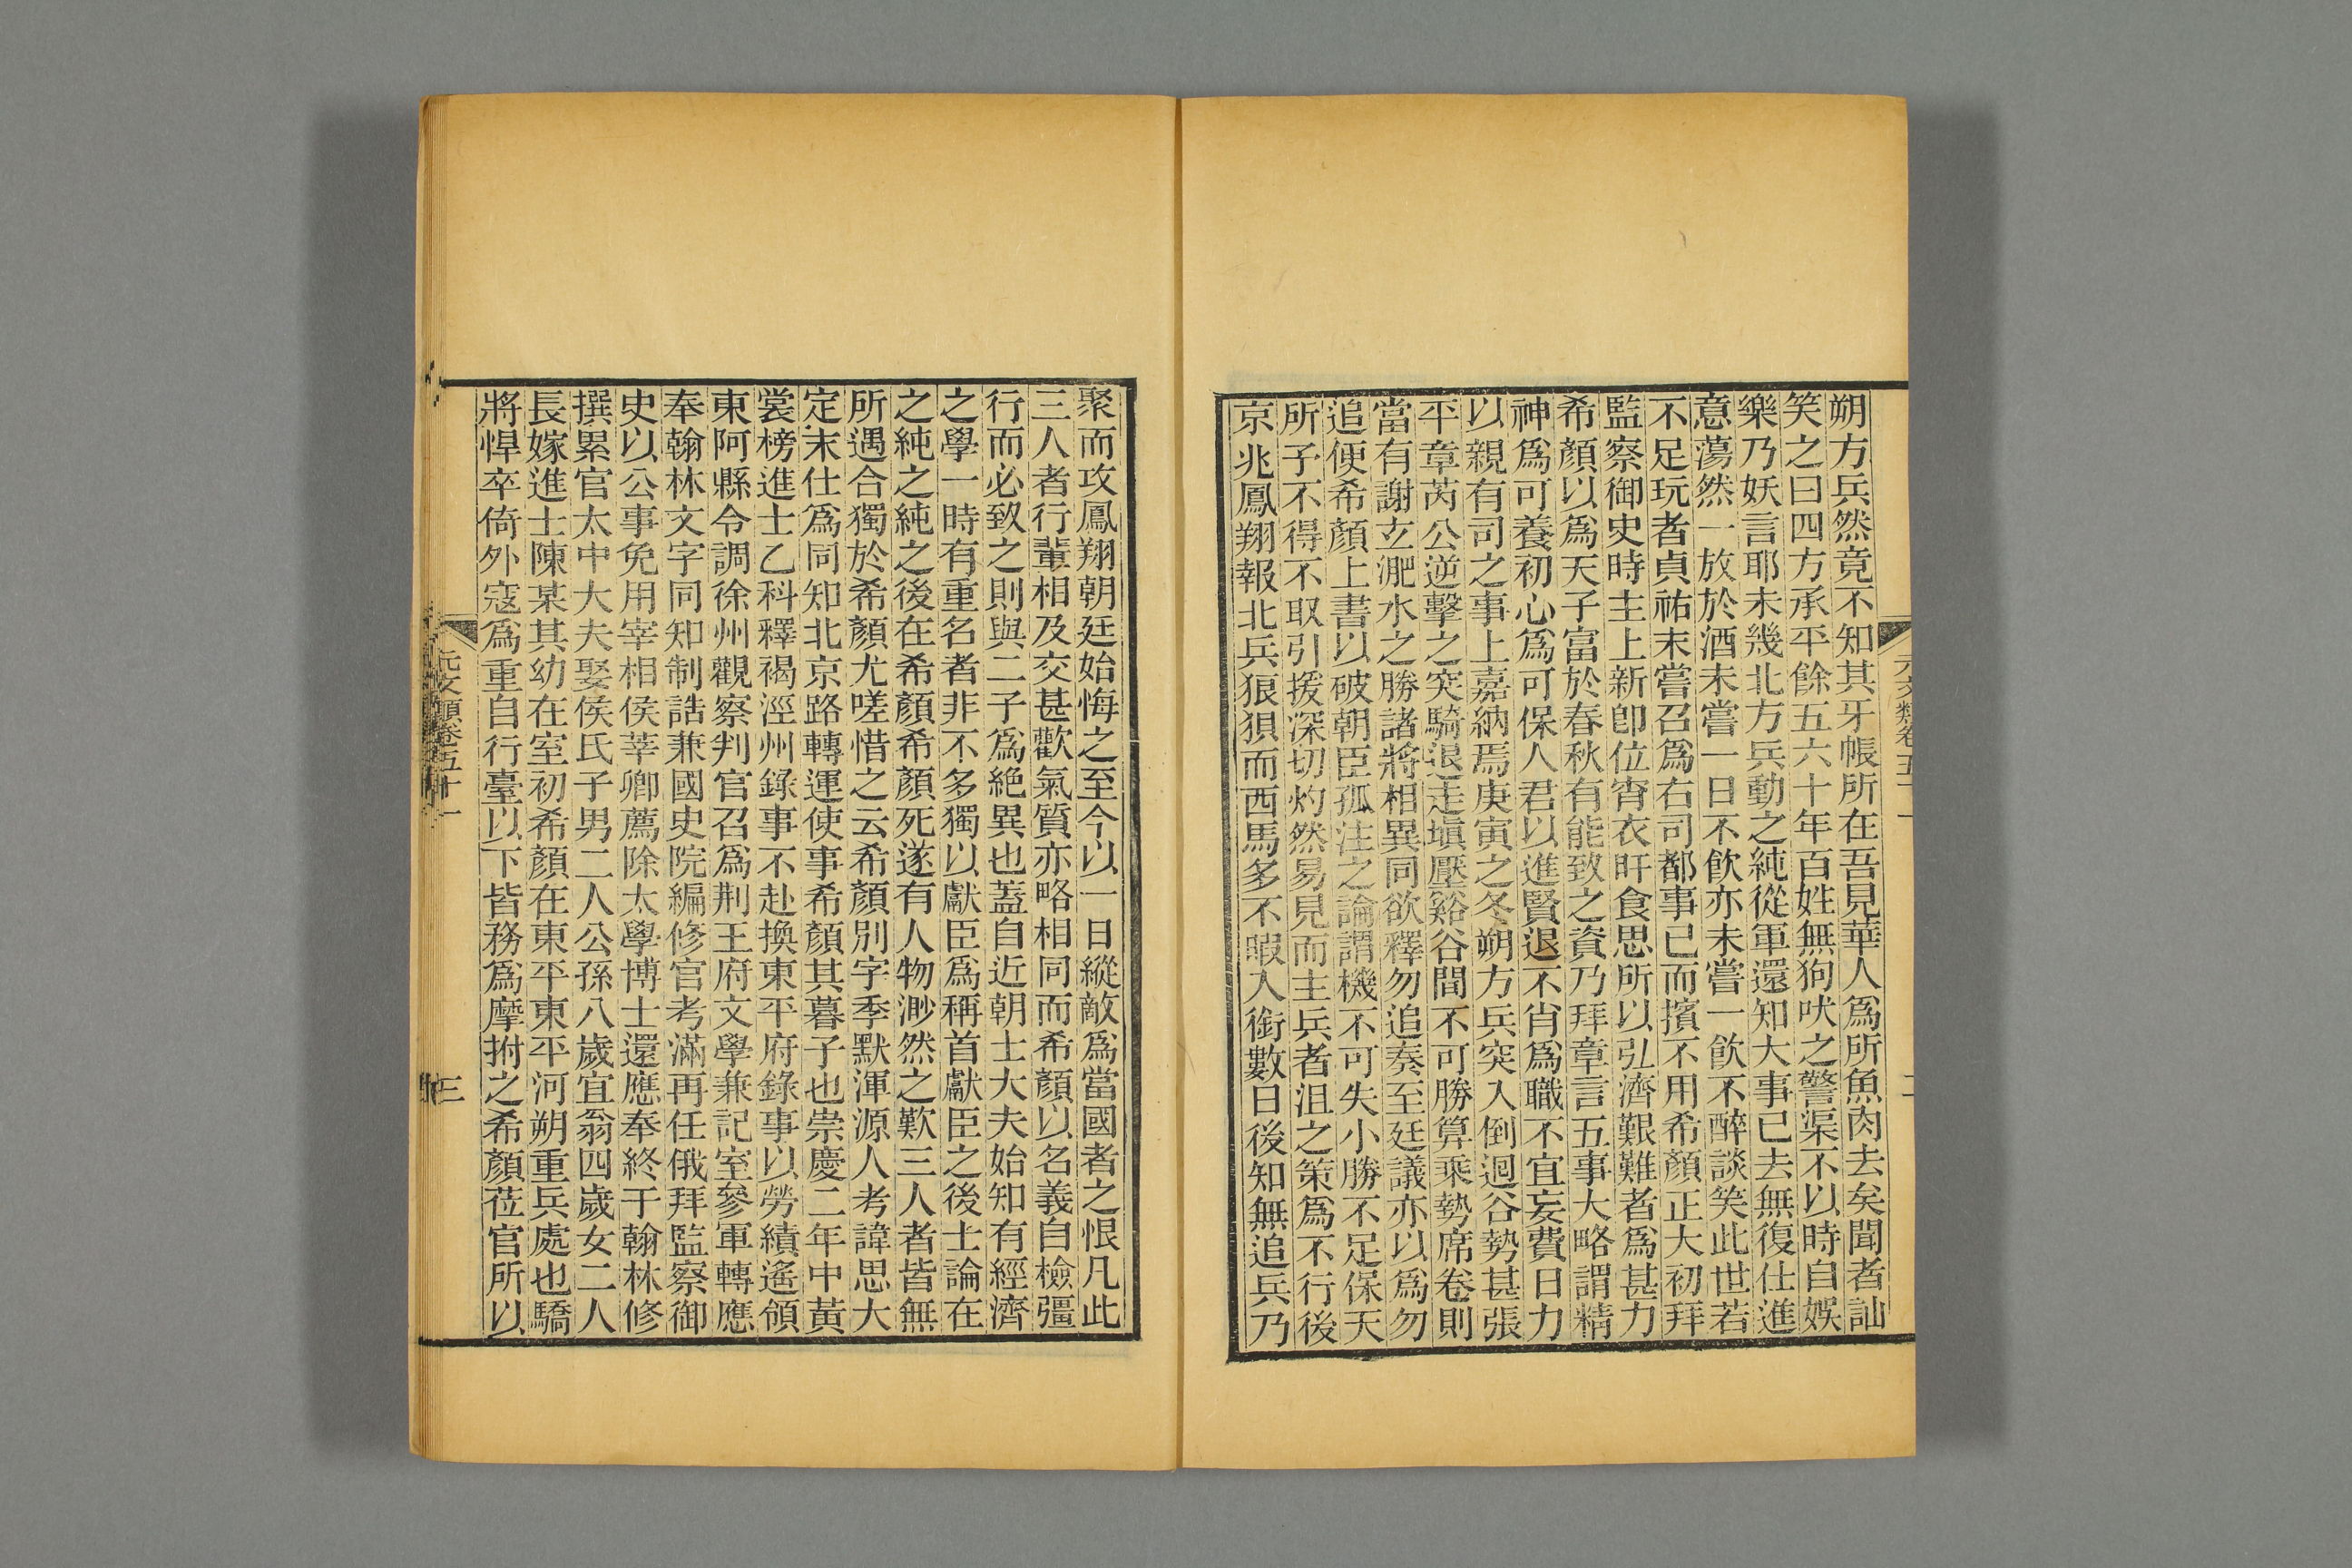 元文類卷五十一
二
朔方兵然竟不知其牙帳所在吾見華人爲所魚肉去矣聞者訕
笑之曰四方承平餘五六十年百姓無狗吠之警渠不以時自娛
樂乃妖言耶未幾北方兵動之純從軍還知大事已去無復仕進
意蕩然一放於酒未嘗一日不飲亦未嘗一飲不醉談笑此世若
不足玩者貞祐末嘗召爲右司都事已而擯不用希顏正大初拜
監察御史時主上新卽位宵衣旰食思所以弘濟艱難者爲甚力
希顏以爲天子富於春秋有能致之資乃拜章言五事大略謂精
神爲可養初心爲可保人君以進賢退不肖爲職不宜妄費日力
以親有司之事上嘉納焉庚寅之冬朔方兵突入倒迴谷勢甚張
平章芮公逆擊之突騎退走塡壓谿谷間不可勝算乘勢席卷則
當有謝玄淝水之勝諸將相異同欲釋勿追奏至廷議亦以爲勿
追便希顏上書以破朝臣孤注之論謂機不可失小勝不足保天
所予不得不取引援深切灼然易見而主兵者沮之策爲不行後
京兆鳳翔報北兵狼狽而西馬多不暇入銜數日後知無追兵乃
聚而攻鳳翔朝廷始悔之至今以一日縱敵爲當國者之恨凡此
三人者行輩相及交甚歡氣質亦略相同而希顏以名義自檢彊
行而必致之則與二子爲絶異也蓋自近朝士大夫始知有經濟
之學一時有重名者非不多獨以獻臣爲稱首獻臣之後士論在
之純之純之後在希顏希顏死遂有人物渺然之歎三人者皆無
所遇合獨於希顏尤嗟惜之云希顏別字季默渾源人考諱思大
定末仕爲同知北京路轉運使事希顏其暮子也崇慶二年中黃
裳榜進士乙科釋褐涇州錄事不赴換東平府錄事以勞績遙領
東阿縣令調徐州觀察判官召爲荆王府文學兼記室參軍轉應
奉翰林文字同知制誥兼國史院編修官考滿再任俄拜監察御
史以公事免用宰相侯莘卿薦除太學博士還應奉終于翰林修
撰累官太中大夫娶侯氏子男二人公孫八歲宜翁四歲女二人
長嫁進士陳某其幼在室初希顏在東平東平河朔重兵處也驕
將悍卒倚外寇爲重自行臺以下皆務爲摩拊之希顏莅官所以
元文類卷五十一
三